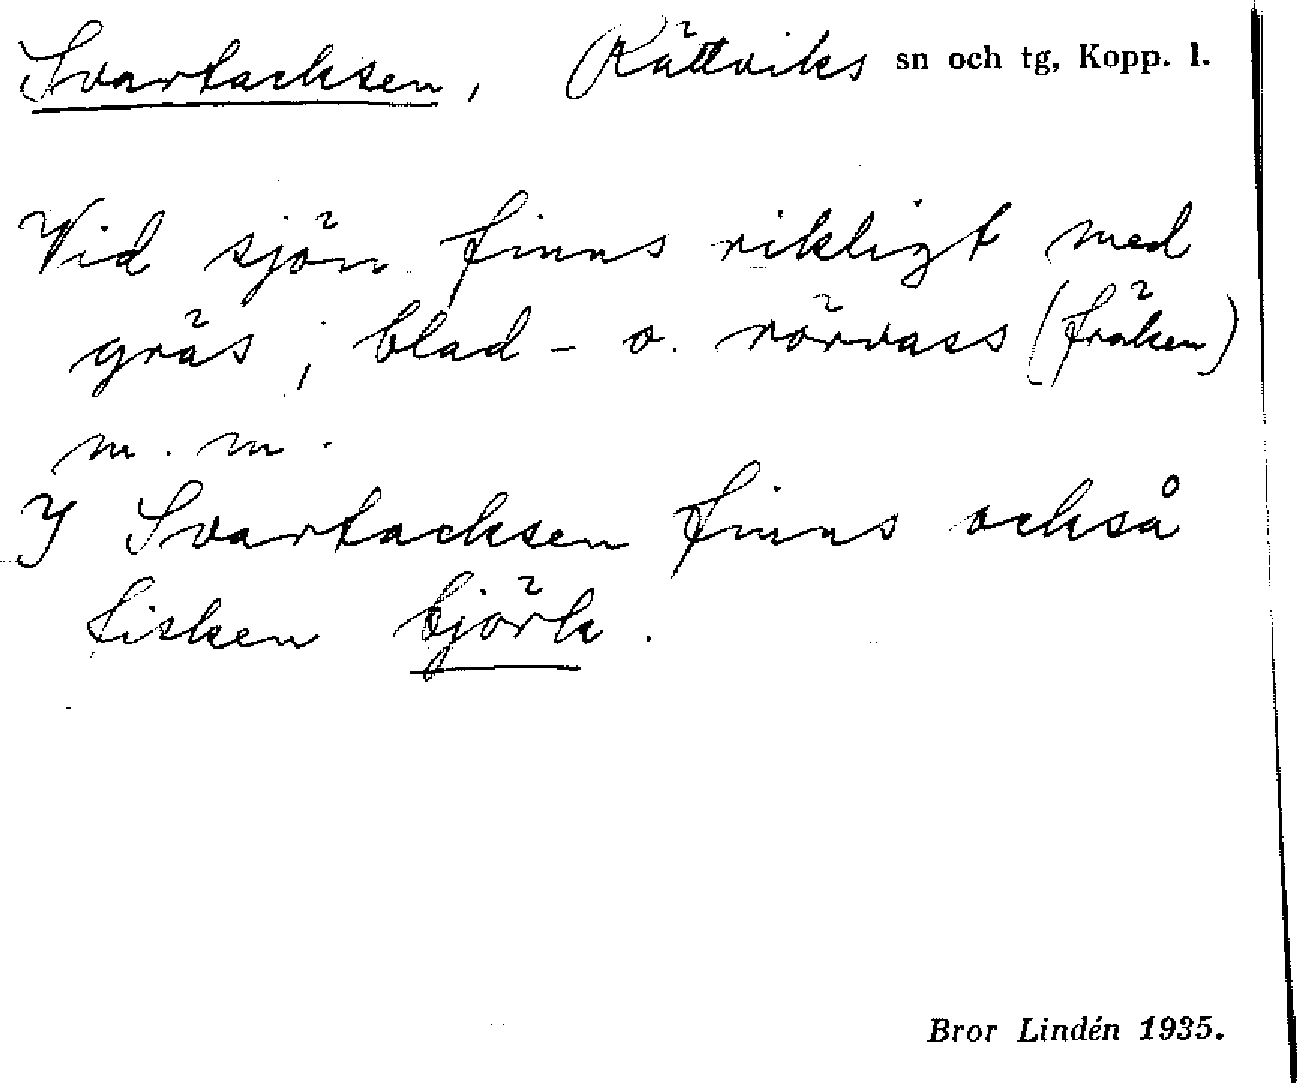 Svartacksen, Rättviks sn och tg, Kopp. l.
Vid sjön finns rikligt med
gräs; blad- o. rörvass (fräken)
m. m.
I Svartacksen finns också
fisken björk.
Bror Lindén 1935.